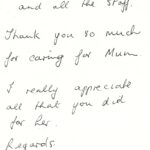 and all the staff.
Thank you so much
for caring for Mum
I really appreciate
all that you did
for her.
Regards